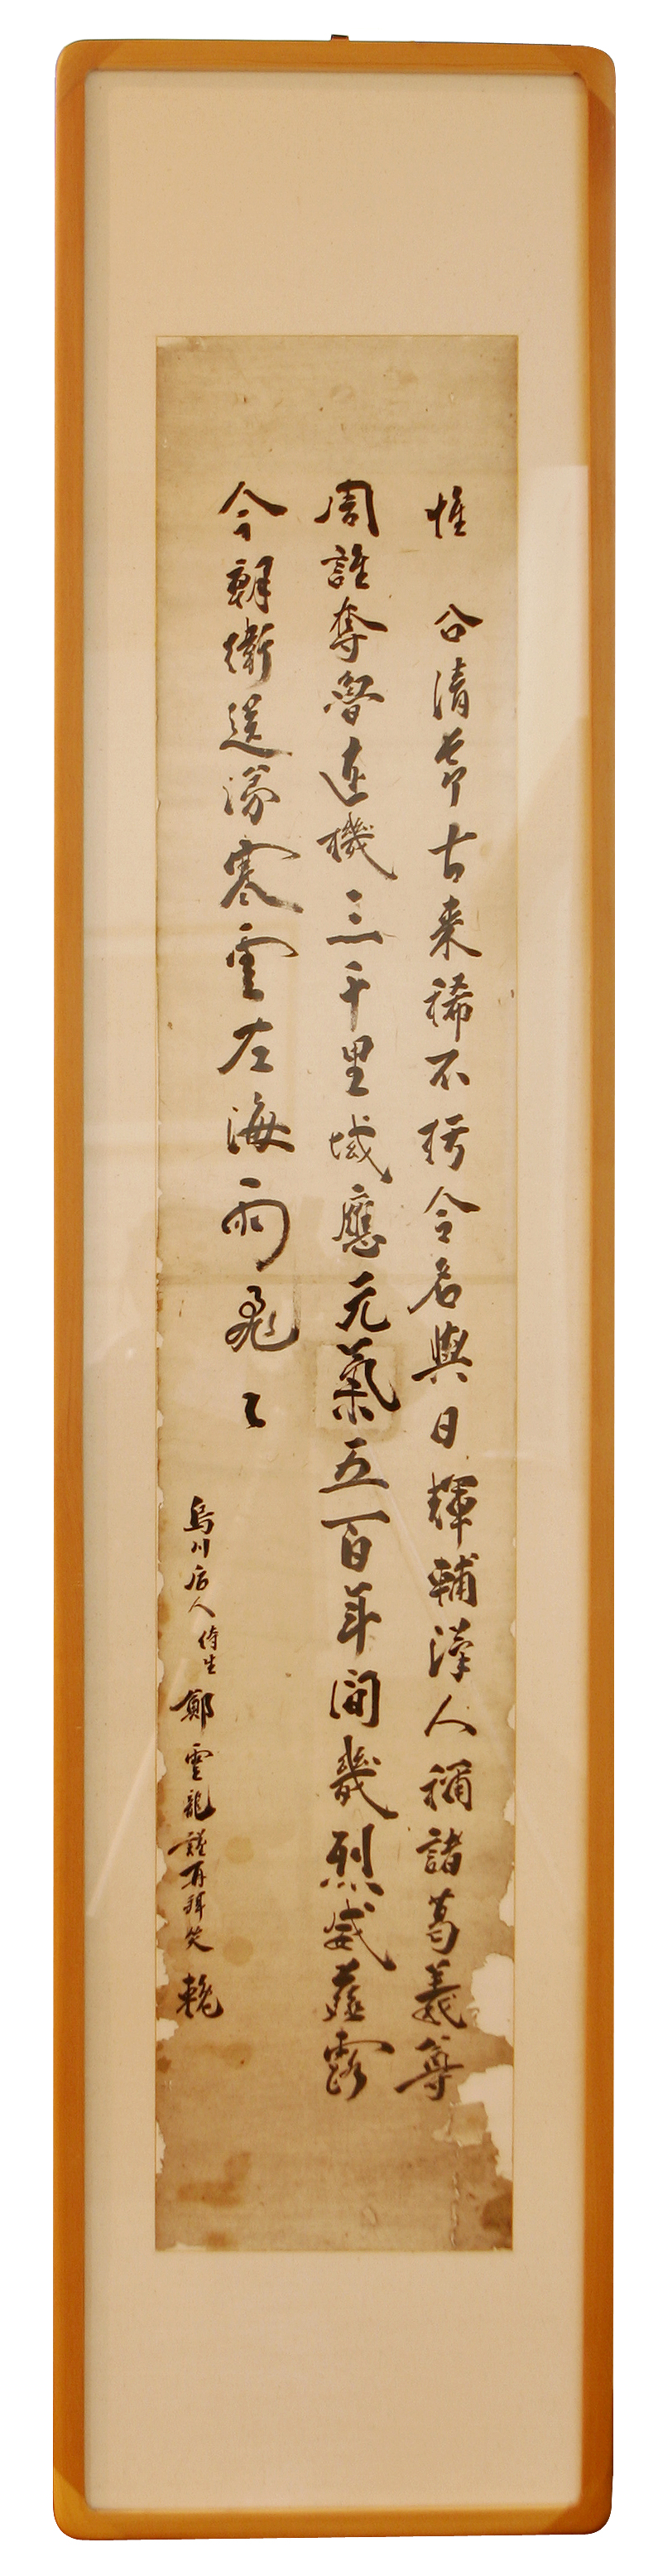 惟 公清節古来稀不朽令名與日輝輔漢人稱諸葛義尊
周誰奪魯連機三千里域應元氣五百年間幾烈威薤露
今朝衛送涕寒雲左海雨飛〻
烏川后人侍生鄭雲龍謹再拜哭輓